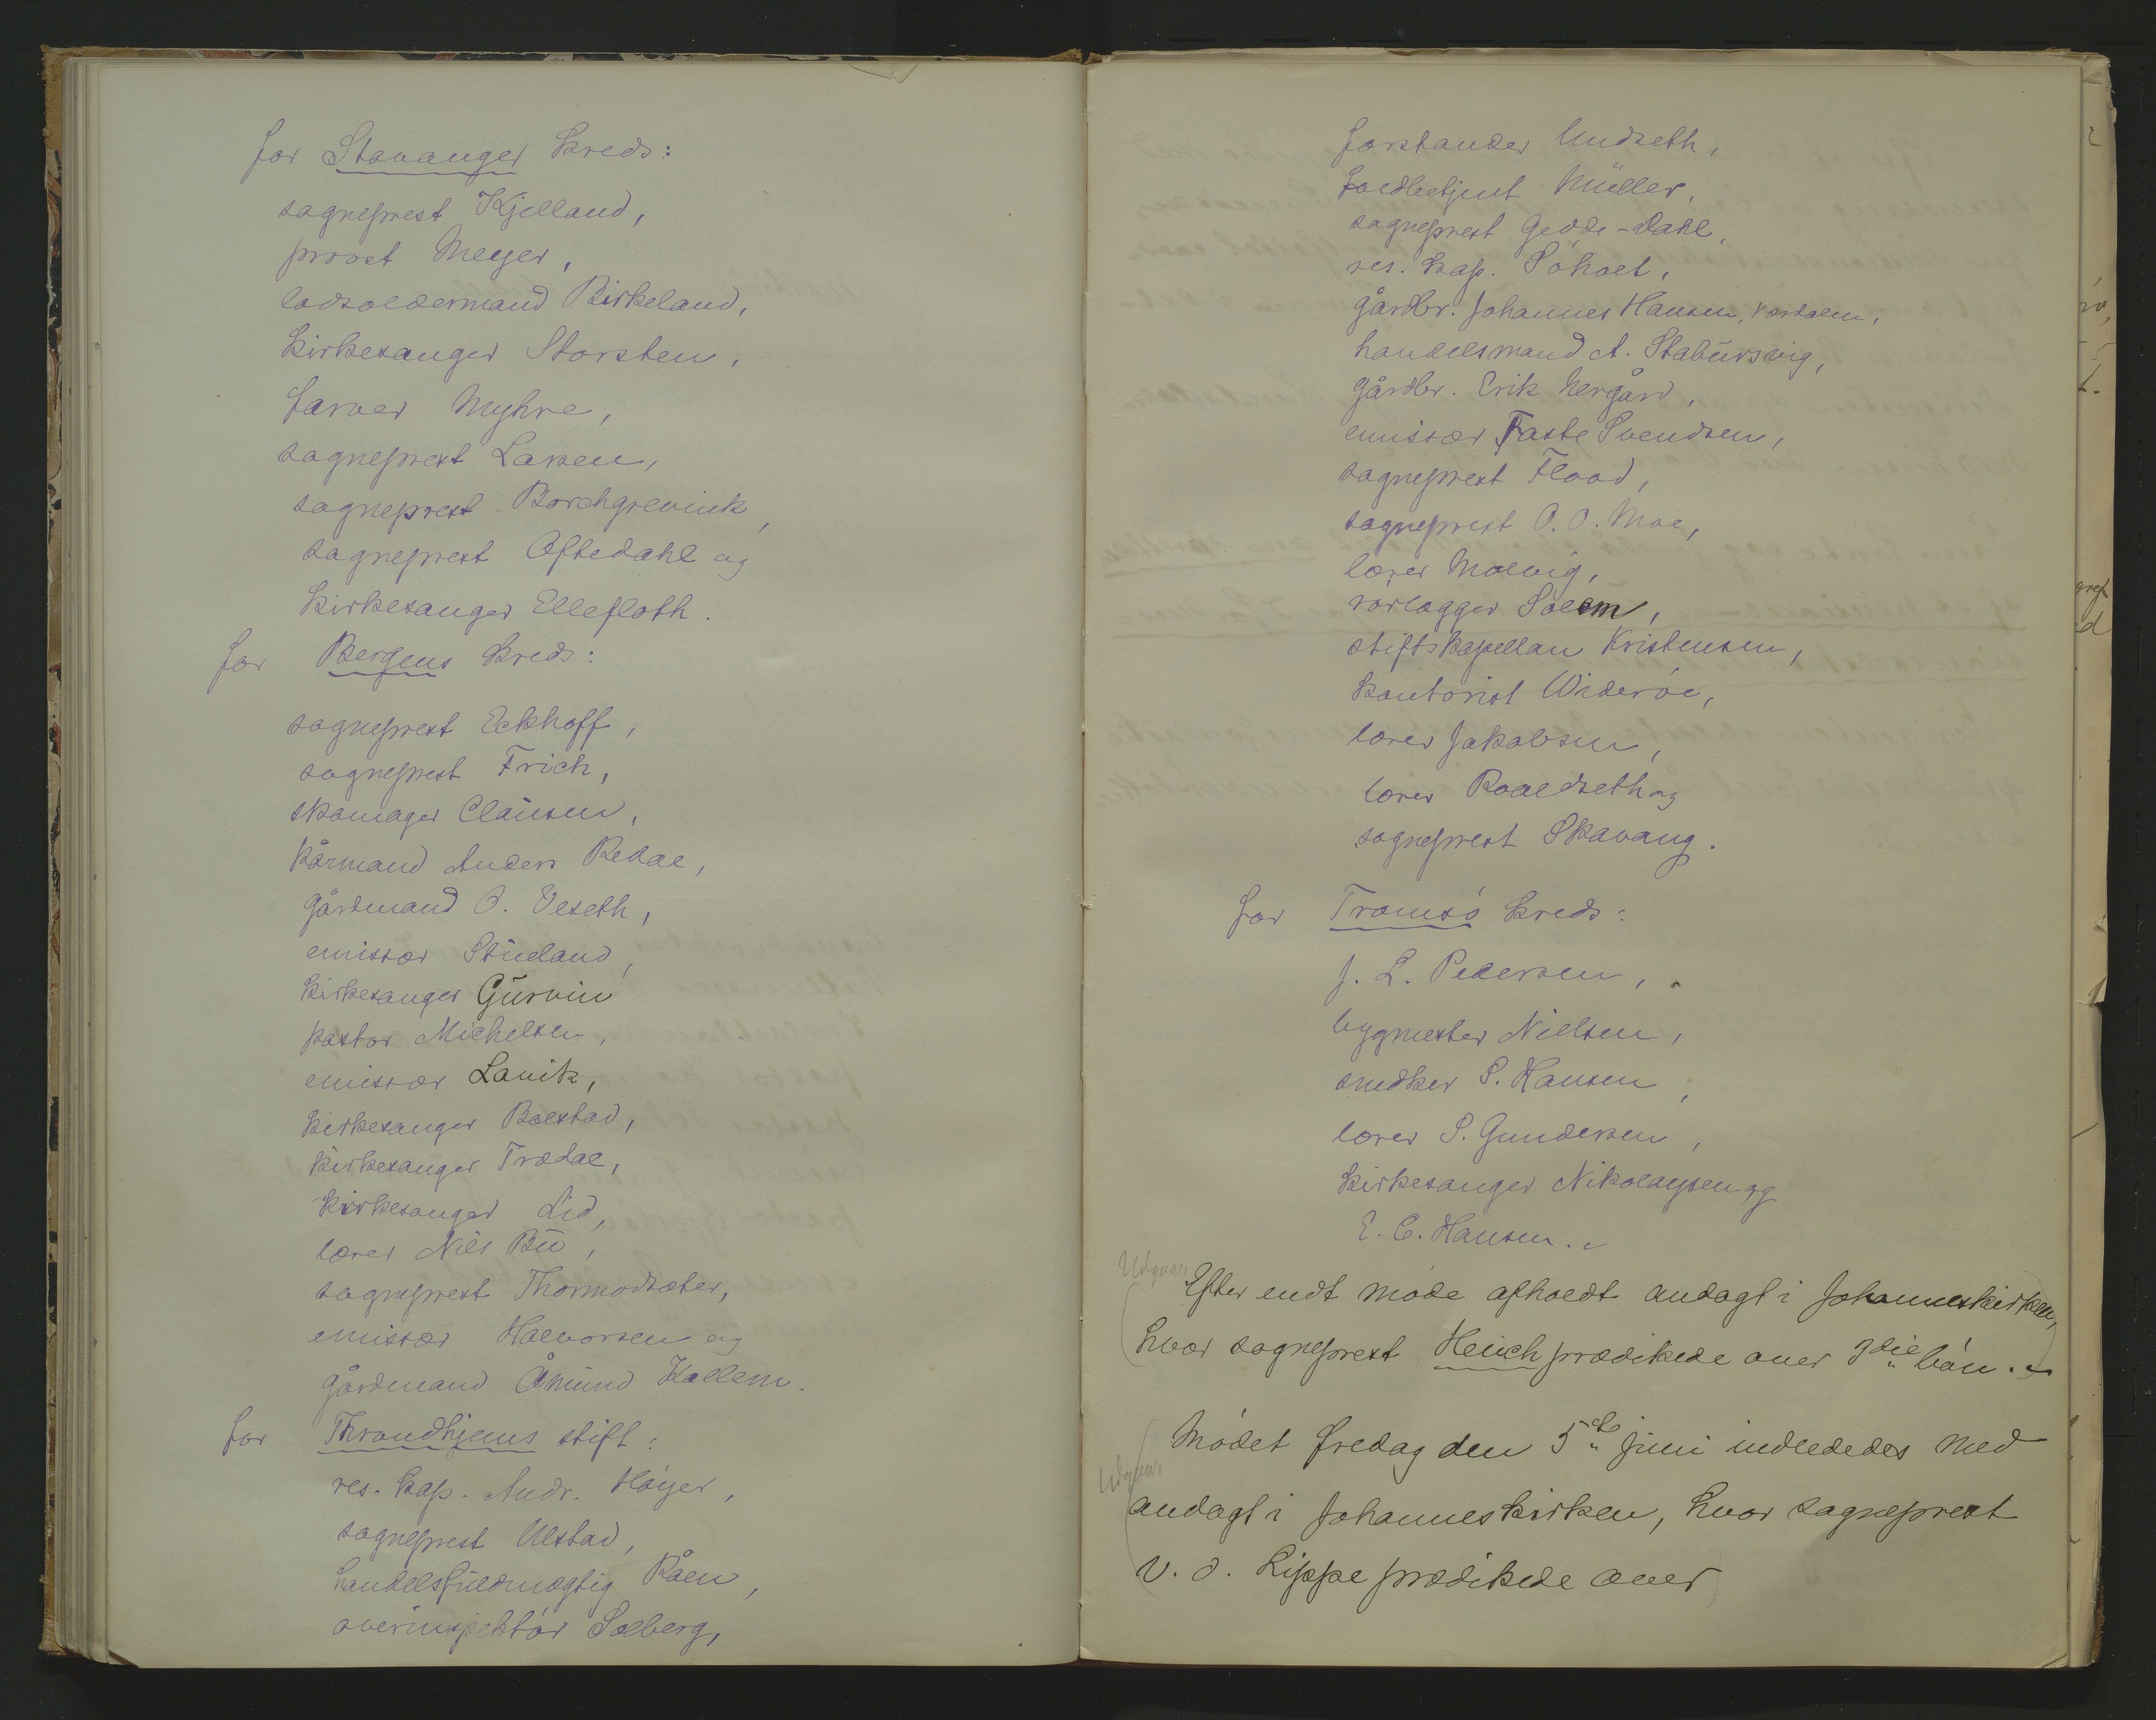 for Stavanger kreds:
sogneprest Kjelland,
provst Meyer,
lodsoldermand Birkeland,
kirkesanger Storsten,
farver Myhre,
sogneprest Larsen,
sogneprest Borchgrevink,
sogneprest Oftedahl og
kirkesanger Ellefloth.
for Bergens kreds:
sogneprest Eckhoff,
sogneprest Frich,
skomager Claüsen,
kårmand Anders Redal,
gårdmand O. Veseth,
emissær Stüeland,
kirkesanger Gürvin
pastor Michelsen,
emissær Lavik,
kirkesanger Bolstad,
kirkesanger Trædal,
kirkesanger Lid,
lærer Nils Bü,
sogneprest Thormodsæter,
emissær Halvorsen og
gårdmand Åmünd Kallem.
for Throndhjems stift:
res. kap. Andr. Høyer,
sogneprest Ulstad,
handelsfüldmægtig Råen,
overinspektør Solberg,
forstander Undseth,
foldbetjent Müller,
sogneprest Gedde-Dahl,
res. kap. Søholt,
gårdbr. Johannes Hansen, Værdalen,
handelsmand A. Stabürsvig,
gårdbr. Erik Nergård,
emissær Faste Svendsen,
sogneprest Flood,
sogneprest O. O. Moe,
lærer Molvig,
rørlægger Solem,
stiftskapellan Kristensen,
kontorist Widerøe,
lærer Jakobsen,
lærer Roaldseth og
sogneprest Skavang.
for Tromsø kreds:
J. L. Pedersen,
bygmester Nielsen,
snedker S. Hansen,
lærer S. Gundersen,
kirkesanger Nikolaysen og
E. C. Hansen.
Udgaar
Efter endt møde afholdt andagt i Johanneskirken,
hvor sogneprest Heuch prædikede over 3die bøn.
Mødet fredag den 5te jüni indlededes med
Udgaar
andagt i Johanneskirken, hvor sogneprest
v. d. Lippe prædikede over